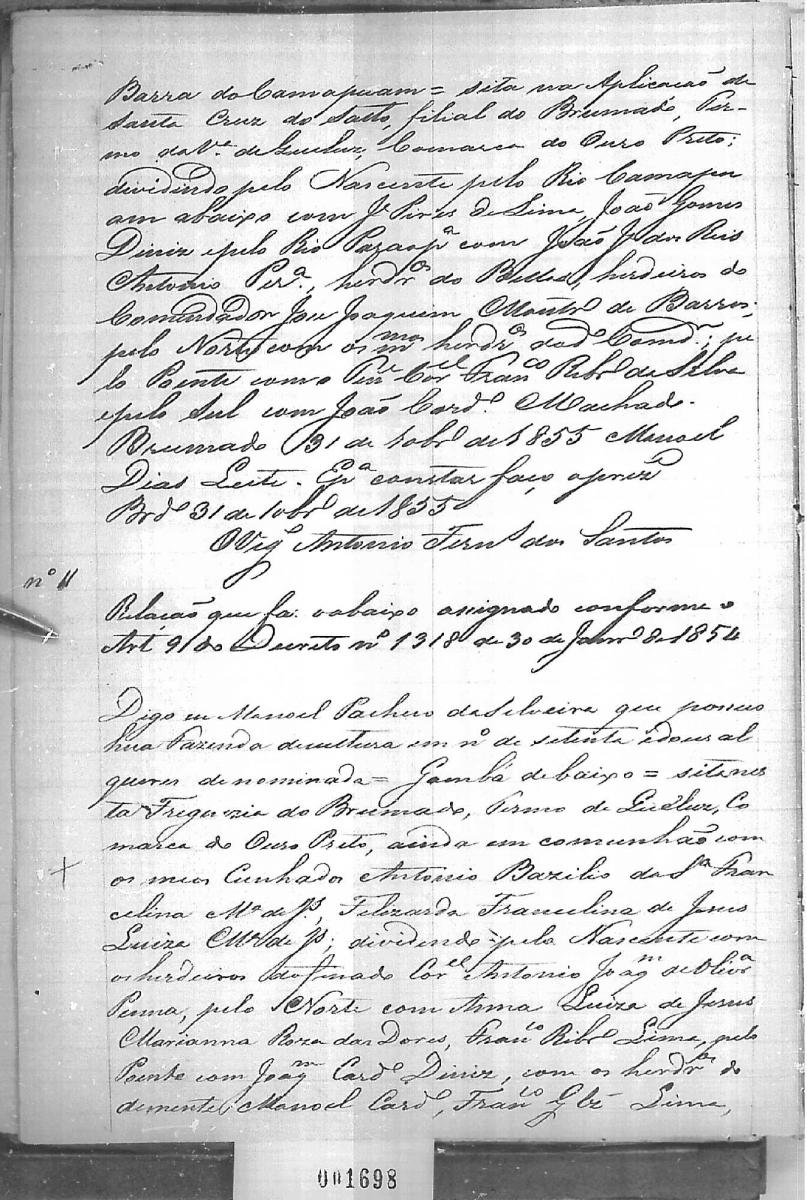 Barra do Camapuam = sita na Aplicação de
Santa Cruz do Salto, filial do Brumado, Ter-
mo da Vª. de Queluz, Comarca do Ouro Preto;
dividindo pelo Nascente pelo Rio Camapu
am abaixo com Jº Pires de Lima, João Gomes
Diniz e pelo Rio Paraopª com João Jº dos Reis
Antonio Perª., herdros do herdeiros do
Comendador Jose Joaquim Montrº de Barros;
pelo Norte com os mmos herdros do dº Comdr.; pe
lo Poente com o Tene Corel Franco Ribrº da Silva
e pelo Sul com João Cardº. Machado.
Brumado 31 de 10brº de 1855 Manoel
Dias Leite. E pª constar faço o prezª
Brdº 31 de 10brº de 1855
O Vigº Antonio Ferns dos Santos
nº 11
Relação que fa. o abaixo assignado conforme o
Art 91 do Decreto nº 1318 de 30 de Janrº de 1854
Digo eu Manoel Pacheco da Silveira que possuo
hua Fazenda de cultura em nº de setenta e dous al
queres denominada = Gambá de baixo = sita nes
ta Freguezia do Brumado, Termo de Queluz, Co
marca do Ouro Preto, ainda em comunhão com
os meos Cunhados Antonio Bazilio da Sª Fran
celina Mª de Js, Felezarda Francelina de Jesus
Luiza Mª de Js; dividindo pelo Nascente com
os herdeiros do finado Corel Antonio Joaqm de Olivrª
Penna, pelo Norte com Anna Luiza de Jesus
Marianna Roza das Dores, Franco Ribrº Lima, pelo
Poente com Joaqm Cardº Diniz, com os herdros do
demente Manoel Cardº, Franco Glz Lima,
001698